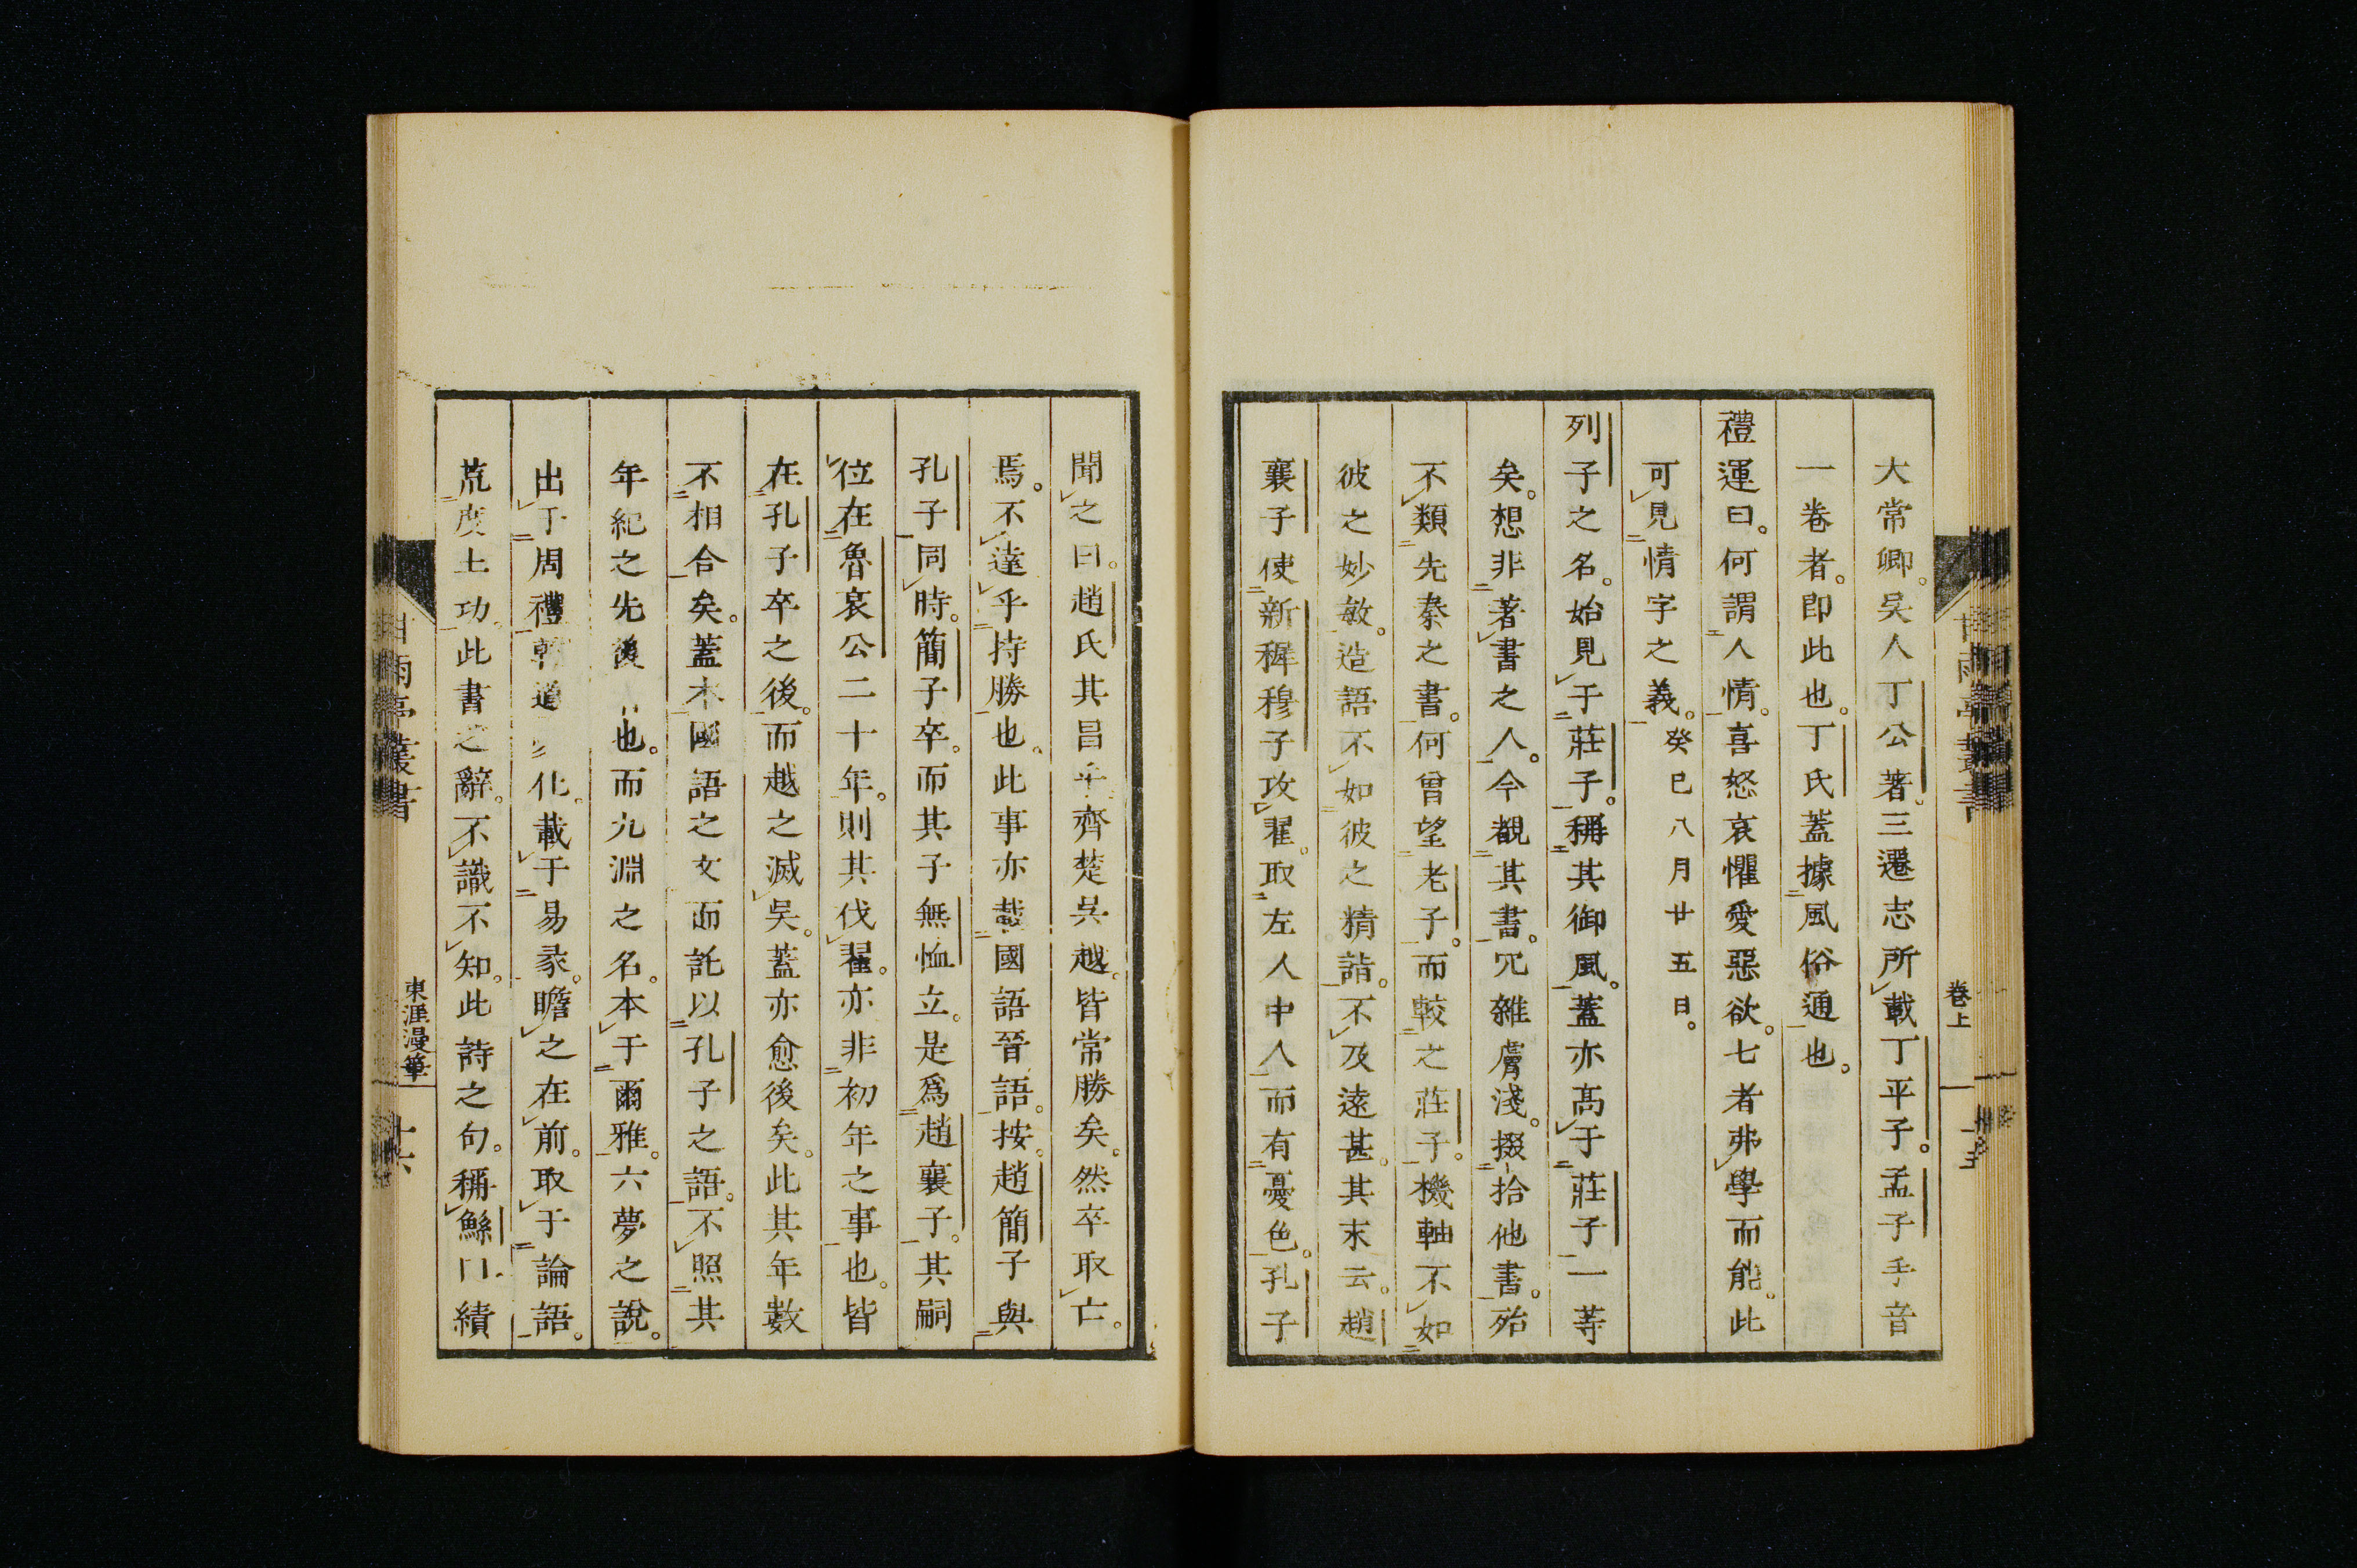 大常卿。吳人丁公著。三遷志所載丁平子。孟子手音
一卷者。即此也。丁氏蓋據風俗通也。
禮運曰。何謂人情。喜怒哀懼愛惡欲。七者弗學而能。此
可見情字之義。癸巳八月廿五日。
列子之名。始見于莊子。稱其御風。蓋亦高于莊子一等
矣。想非著書之人。今覩其書。冗雜膚淺。掇拾他書。殆
不類先秦之書。何曾望老子。而較之莊子。機軸不如
彼之妙敏。造語不如彼之精詣。不及遠甚。其末云。趙
襄子使新穉穆子攻翟。取左人中人而有憂色。孔子
聞之曰。趙氏其昌乎。齊楚吳越。皆常勝矣。然卒取亡。
焉。不達乎持勝也。此事亦載國語晉語。按。趙簡子與
孔子同時。簡子卒。而其子無恤立。是爲趙襄子。其嗣
位在魯哀公二十年。則其伐翟。亦非初年之事也。皆
在孔子卒之後。而越之滅吳。蓋亦愈後矣。此其年數
不相合矣。蓋本國語之文而託以孔子之語。不照其
年紀之先後也。而九淵之名。本于爾雅。六夢之說。
出于周禮。乾道化。載于易彖。瞻之在前。取于論語。
荒度土功。此書之辭。不識不知。此詩之句。稱鯀績
卷上
甘雨亭叢書
東涯漫筆
十六